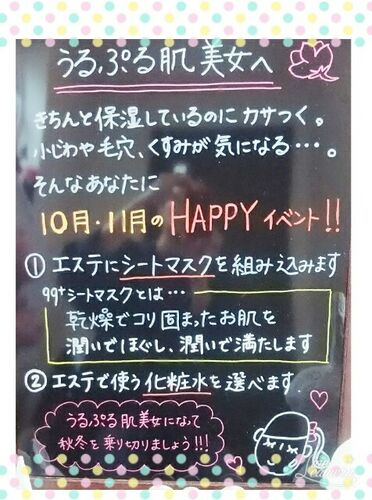 うるぷる肌美女へ
きちんと保湿しているのに カサつく。
小じわや毛穴、くすみが気になる・・・。
そんなあなたに
10月・11月のHAPPYイベント!!
① エステにシートマスクを組み込みます
99⁺シートマスクとは…
乾燥でコリ固まったお肌を
潤いでほぐし、潤いで満たします
② エステで使う化粧水を選べます
うるぷる肌美女になって
秋冬を乗り切りましょう!!!